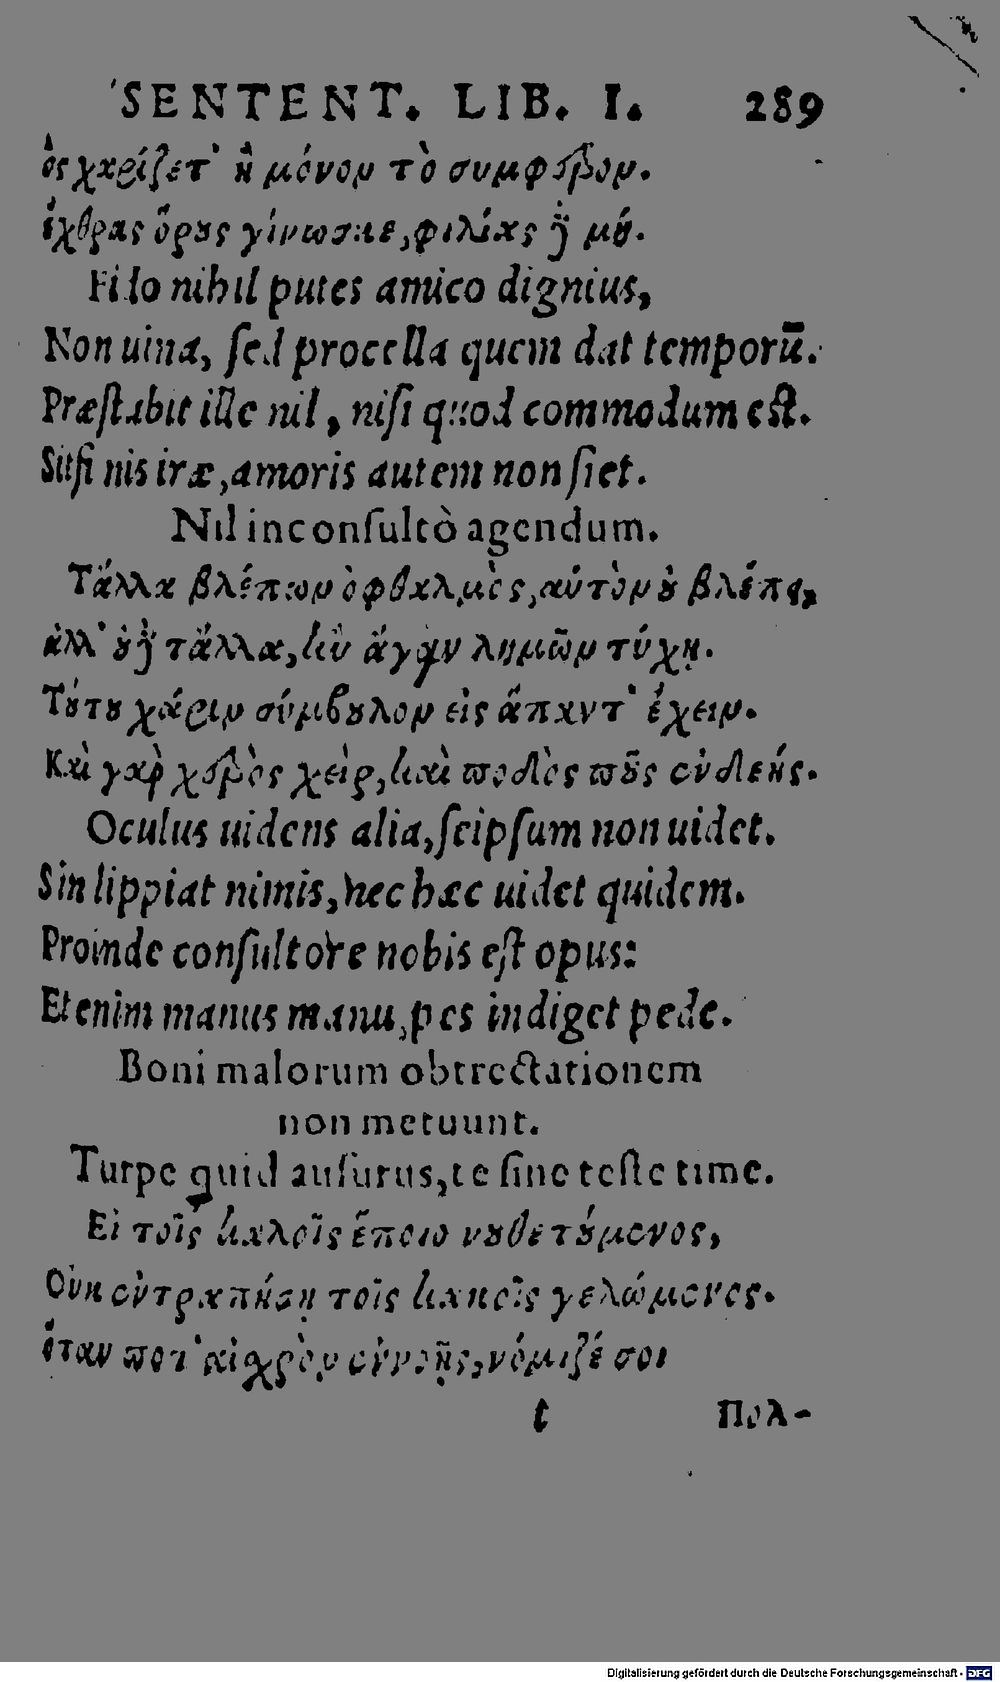 SENTENT. LIB. I. 289
ὃς χαρίζετ' ἢ μόνον τὸ συμφέρον.
ἔχθρας ὅρους γίνωσκε, φιλίας δὲ μού.
Filo nihil putes amico dignius,
Non uina, sed procella quem dat temporū.
Præstabit ille nil, nisi quod commodum est.
Sit finis iræ, amoris autem non siet.
Nil inconsultò agendum.
Τἄλλα βλέπων ὀφθαλμὸς, αὑτὸν οὐ βλέπει,
ἀλλ' οὐδὲ τἄλλα, κἂν ἄγαν λημῶν τύχῃ.
Τούτου χάριν σύμβουλον εἰς ἅπαντ' ἔχειν.
Καὶ γὰρ χερὸς χεὶρ, καὶ ποδὸς ποῦς ἐνδεής.
Oculus uidens alia, seipsum non uidet.
Sin lippiat nimis, nec hæc uidet quidem.
Proinde consultore nobis est opus:
Etenim manus manu, pes indiget pede.
Boni malorum obtrectationem
non metuunt.
Turpe quid ausurus, te sine teste time.
Εἰ τοῖς καλοῖς ἕποιο νουθετούμενος,
Οὐκ ἐντραπήσῃ τοῖς κακοῖς γελώμενος.
ὅταν ποτ' αἰχρὸν ἐννοῇς, νόμιζέ σοι
t Πολ-
Digitalisierung gefördert durch die Deutsche Forschungsgemeinschaft - DFG